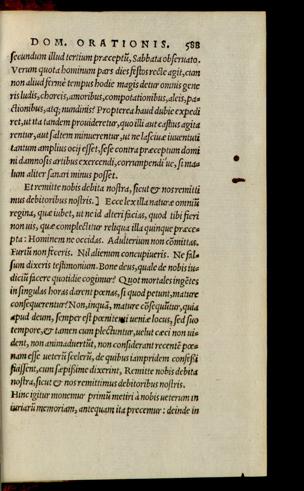 DOM. ORATIONIS. 588
secundum illud tertium præceptũ, Sabbata obseruato.
Verum quota hominum pars dies festos recte agit, cum
non aliud fermè tempus hodie magis detur omnis gene
ris ludis, choreis, amoribus, compotationibus, aleis, pa-
ctionibus, atq; nundinis? Propterea haud dubiè expedi
ret, ut ita tandem prouideretur, quo illi aut castius agita
rentur, aut saltem minuerentur, ut ne lasciuæ iuuentuti
tantum amplius ocij esset, sese contra præceptum domi
ni damnosis artibus exercendi, corrumpendi´ue, si ma-
lum aliter sanari minus posset.
Et remitte nobis debita nostra, sicut & nos remitti
mus debitoribus nostris.] Ecce lex illa naturæ omniũ
regina, quæ iubet, ut ne id alteri facias, quod tibi fieri
non uis, quæ complectitur reliqua illa quinque præce-
pta: Hominem ne occidas. Adulterium non cõmittas.
Furtũ non feceris. Nil alienum concupiueris. Ne fal-
sum dixeris testimonium. Bone deus, quale de nobis iu-
diciũ facere quotidie cogimur? Quot mortales ingẽtes
in singulas horas darent pœnas, si quod petunt, mature
consequerentur? Non, inquã, mature cõsequũtur, quia
apud deum, semper est pœnitenti ueniæ locus, sed suo
tempore, & tamen cum plectuntur, uelut cæci non ui-
dent, non animaduertũt, non considerant recentẽ pœ-
nam esse ueterũ scelerũ, de quibus iampridem confessi
fuissent, cum sæpissime dixerint, Remitte nobis debita
nostra, sicut & nos remittimus debitoribus nostris.
Hinc igitur monemur primũ metiri à nobis ueterum in
iuriarũ memoriam, antequam ita precemur: deinde in